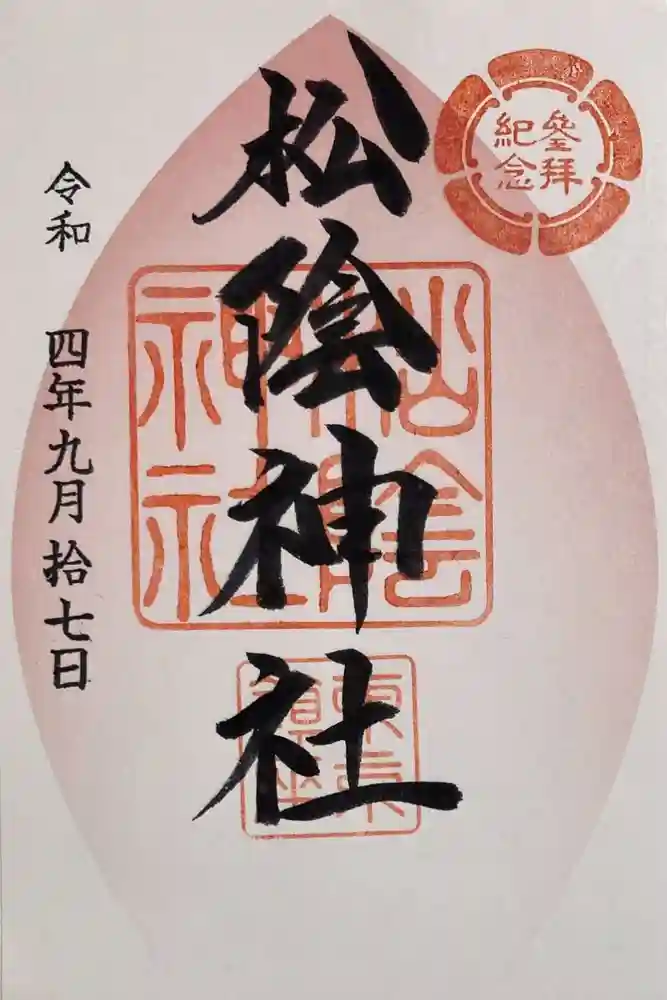 參拜
紀念
松陰神社
松陰
神社
東京
鎮座
令和 四年九月拾七日